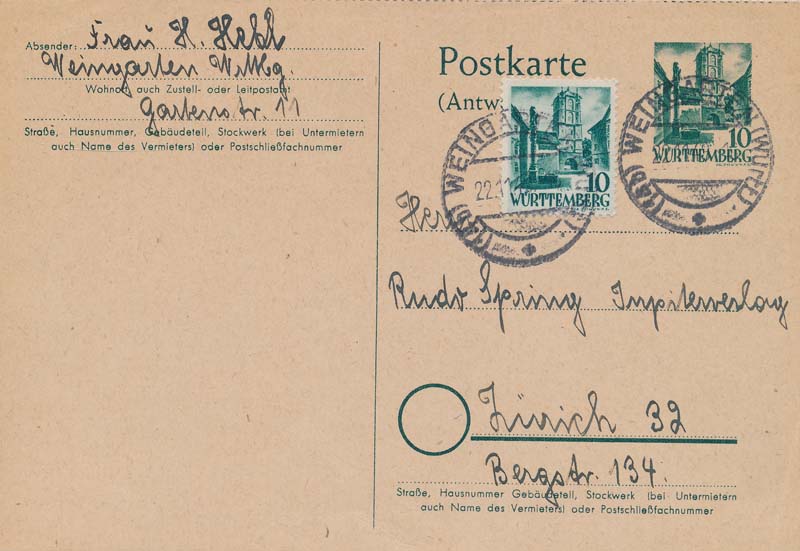 Absender: Frau H. Hehl
Weingarten Wttbg
Wohnort, auch Zustell- oder Leitpostamt
Gartenstr. 11
Straße, Hausnummer, Gebäudeteil, Stockwerk (bei Untermietern
auch Name des Vermieters) oder Postschließfachnummer
Postkarte
(Antw
10
WÜRTTEMBERG
10
WÜRTTEMBERG
(14b) WEINGARTEN
22.11
(14b) WEINGARTEN (WÜRTT.)
Herr
Rudv Spring Jupiterverlag
Zürich 32
Bergstr. 134.
Straße, Hausnummer Gebäudeteil, Stockwerk (bei Untermietern
auch Name des Vermieters) oder Postschließfachnummer